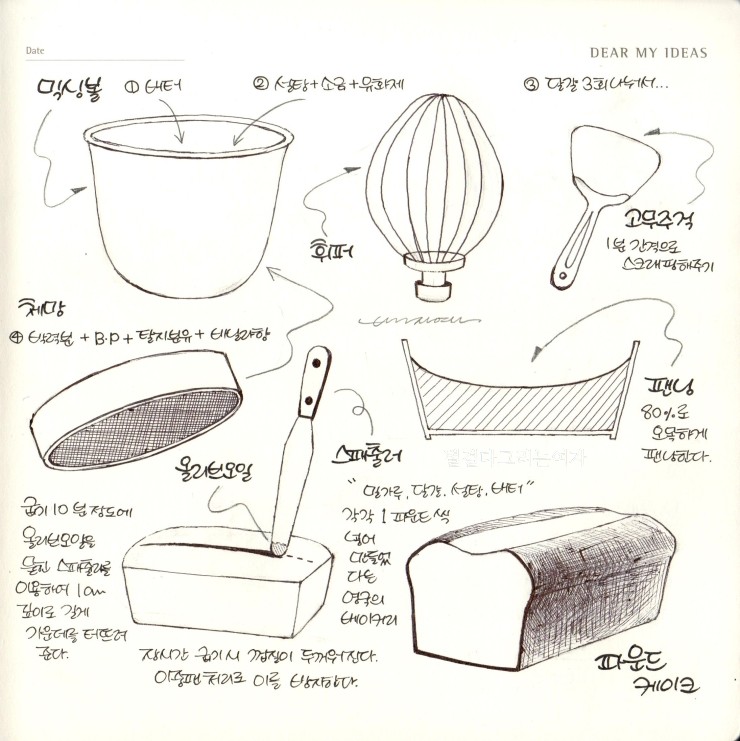 Date
DEAR MY IDEAS
믹싱볼
① 버터
② 설탕+소금+유화제
③ 달걀 3회 나눠서...
휘퍼
고무주걱
1분 간격으로
스크래핑해주기
체망
④ 박력분 + B·P + 탈지분유 + 바닐라향
팬닝
80%로
오목하게
팬닝한다.
별걸다그리는여자
스패츌러
올리브오일
굽기 10분 정도에
올리브오일을
묻힌 스패츌러를
이용하여 1cm
깊이로 길게
가운데를 터뜨려
준다.
"밀가루, 달걀, 설탕, 버터"
각각 1파운드씩
넣어
만들었
다는
영국의
베이커리
장시간 굽기시 껍질이 두꺼워진다.
이중팬 처리로 이를 방지한다.
파운드
케이크